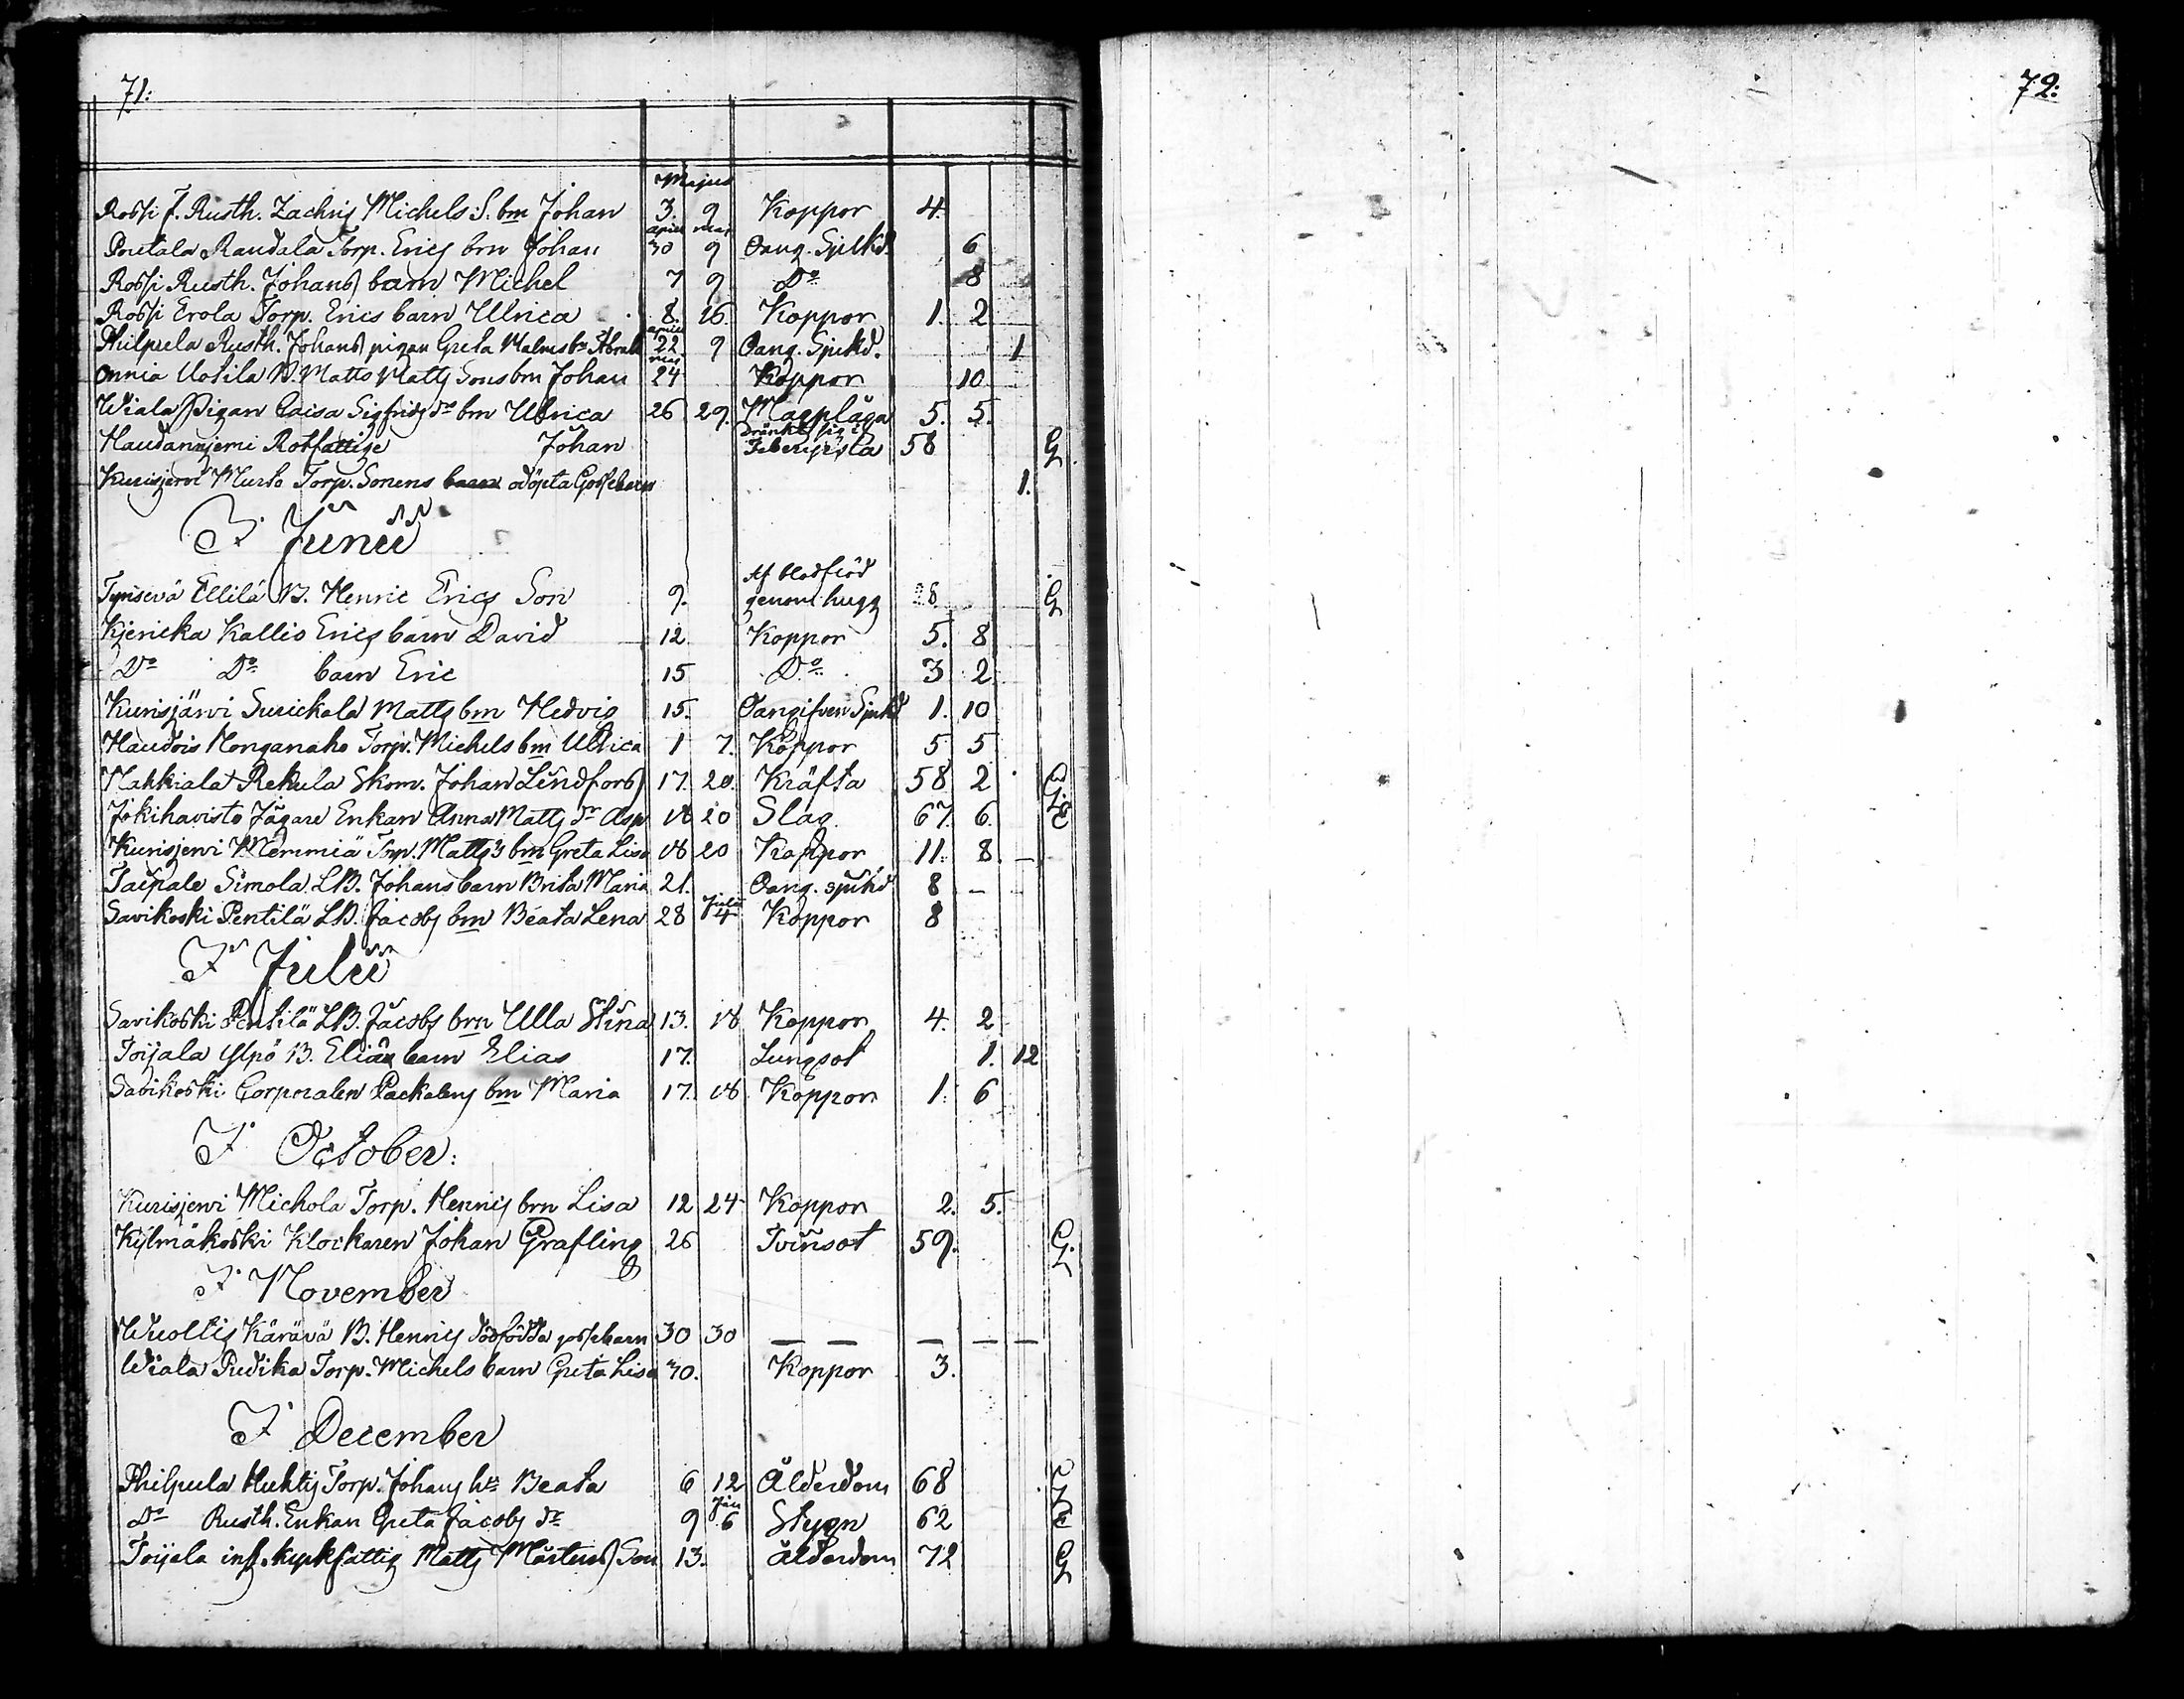 71:
72:
Majus
Rossi f. Rusth. Zachris Michels S. brn Johan 3. 9 Koppor 4.
april maj
Poutala Raudala Torp. Erics brn Johan 30 9 Oang. Sjukd. 6
Rossi Rusth. Johans barn Michel 7 9 Do 8
Rossi Erola Torp. Erics barn Ulrica 8. 16. Koppor 1. 2
april
Philpula Rusth. Johans pigan Greta Malms bn Abrah 22 9 Oang. Sjukd. 1
maj
Onnia Uotila B. Matts Matts Sons brn Johan 24 Koppor 10
Wiala Pigan Caisa Sigfrids dr brn Ulrica 26 29. Magplåga 5. 5.
Haudanjemi Rotfattige Johan dränkt sig i 58 G
Kurisjervi Murto Torp. Sonens barn odöpta Gossebarn 1.
I Junii
Af blodflöd
Tyrisevä Ellilä B. Henric Erics Son 9. genom hugg 28 G
Kjericka Kallio Erics barn David 12 Koppor 5. 8
Do Do barn Eric 15 Do 3 2
Kurisjärvi Surickala Matts brn Hedvig 15. Oangifven Sjukd 1. 10
Haudois Monganaho Torp. Michels brn Ulrica 1 7. Koppor 5 5
Makkiala Rekula Skom. Johan Lindfors 17. 20. Kräfta 58 2 G
Jokihavisto Jägare Enkan Anna Matts dr Asp 18 20 Slag 67. 6. E
Kurisjervi Memmiä Torp. Matts's brn Greta Lisa 18 20 Koppor 11. 8. –
Taipale Simola LB. Johans barn Brita Maria 21. Oang. sjukd 8 –
Savikoski Pentilä LB. Jacobs brn Beata Lena 28 Julii 4 Koppor 8
I Julii
Savikoski Pentilä LB. Jacobs brn Ulla Stina 13. 18 Koppor 4. 2
Toijala Ylpö B. Eliae barn Elias 17. Lungsot 1. 12
Savikoski Corporalen Packalens brn Maria 17. 18 Koppor 1. 6
I October:
Kurisjervi Michola Torp. Henrics brn Lisa 12 24 Koppor 2. 5.
Kylmäkoski Klockaren Johan Grafling 26 Tvinsot 59. G.
I November
Wuoltis Kärävä B. Henrics dödfödda gossebarn 30 30 — — — — —
Wiala Pudika Torp. Michels barn Greta Lisa 30. Koppor 3.
I December
Philpula Huhtis Torp. Johans hu Beata 6 12 Ålderdom 68
Do Rusth. Enkan Greta Jacobs dr 9 Jan 6 Stygn 62 E
Toijala inh. kyrkfattig Matts Mårtens Son 13. ålderdom 72 G